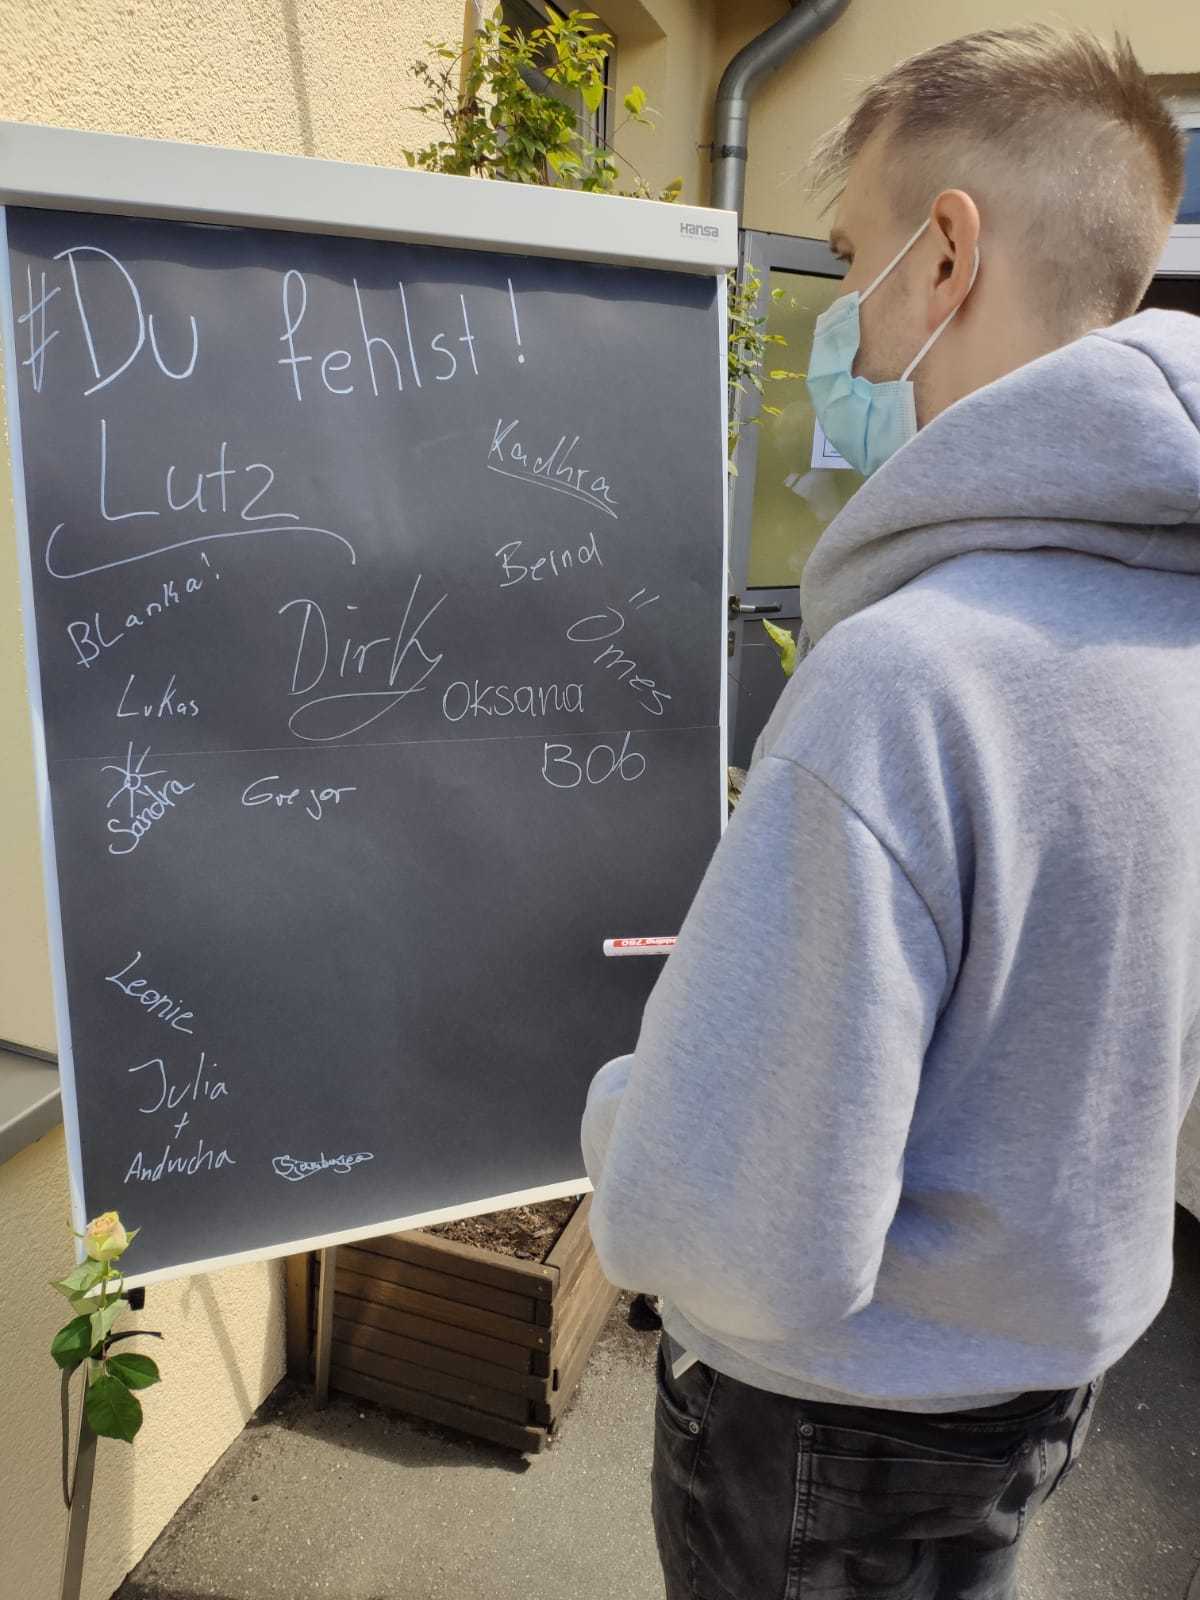 Hansa
#Du fehlst!
Lutz
Kadhra
Bernd
BLanka!
Dirk
Ömes
Lukas
Oksana
Bob
Sandra
Gregor
Leonie
Julia
+